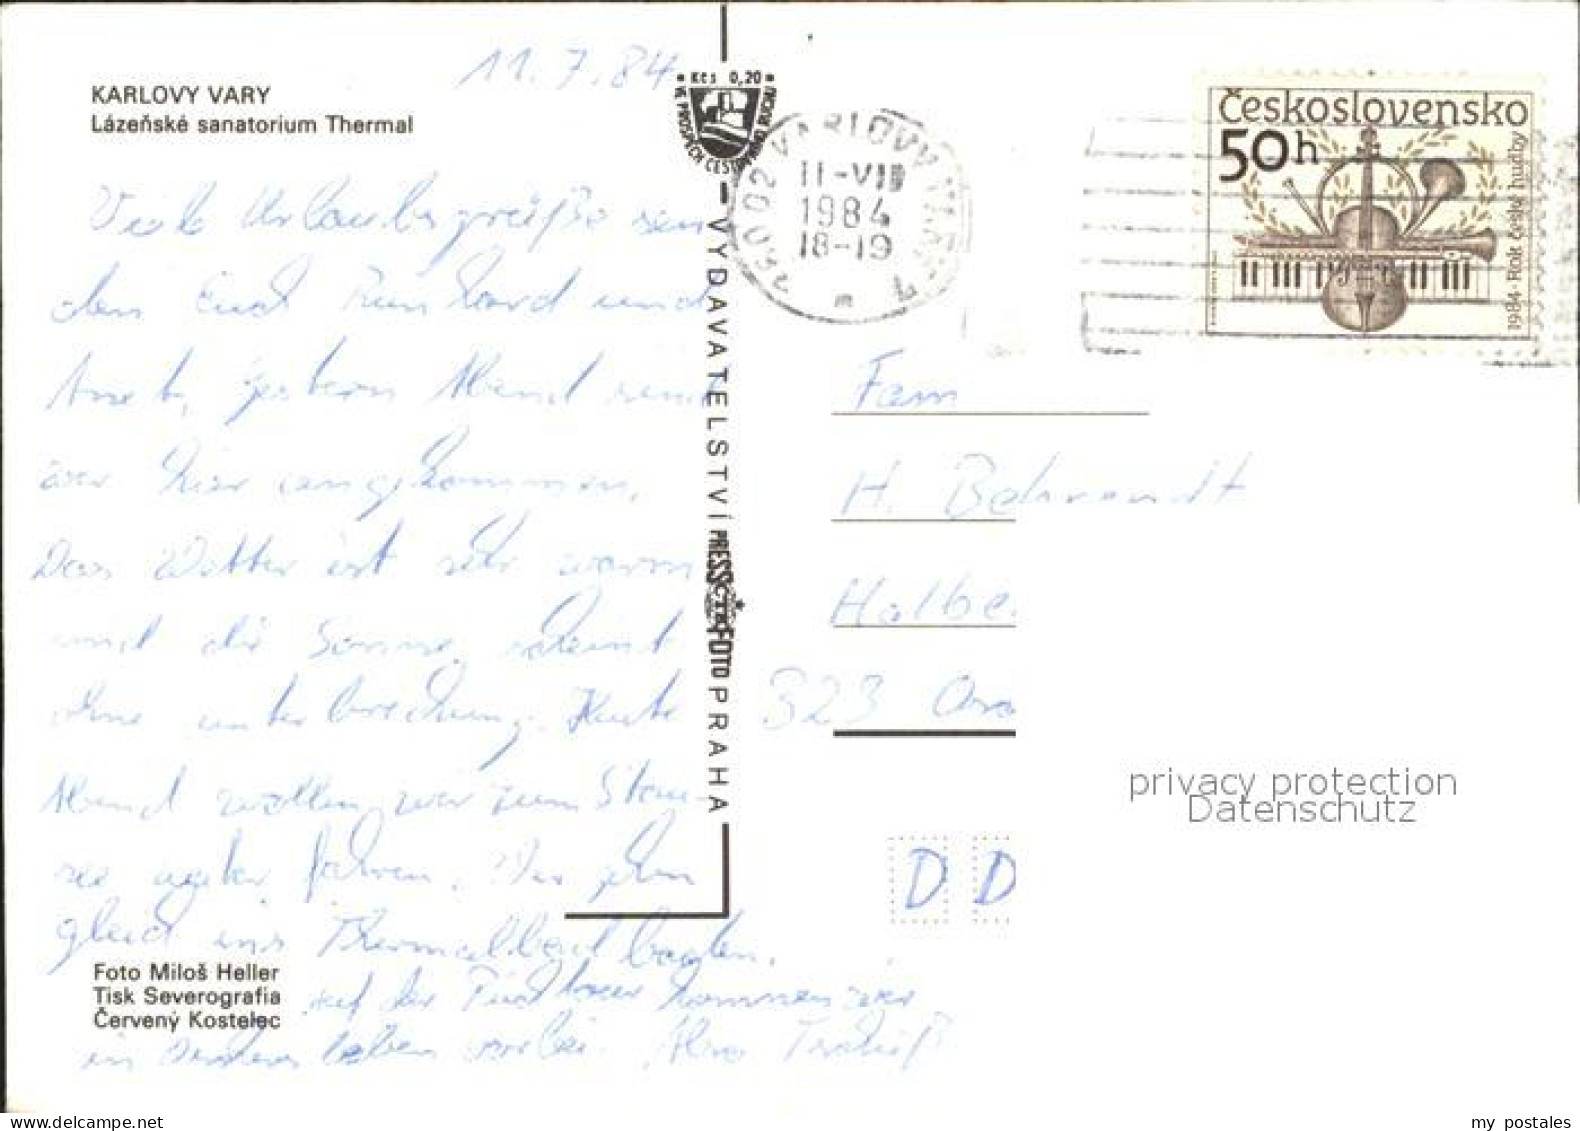 11.7.84
KARLOVY VARY
Lázeňské sanatorium Thermal
Viele Urlaubsgrüße sen-
den Euch und
gestern Abend sind
wir hier angekommen.
Das Wetter ist sehr warm
und die Sonne scheint
ohne unterbrechung. Heute
Abend wollen wir zum Stau-
see fahren. Wir gehn
gleich ins Thermalbad baden.
auf der kommen wir
in vorbei.
Foto Miloš Heller
Tisk Severografia
Červený Kostelec
Kčs 0,20
VE PROSPĚCH
VYDAVATELSTVÍ PRESSFOTO PRAHA
360 02 KARLOVY VARY
11-VII
1984
18-19
Československo
50h
1984-Rok české hudby
Fam
H. Behrendt
Halbe
323
D D
privacy protection
Datenschutz
my postales